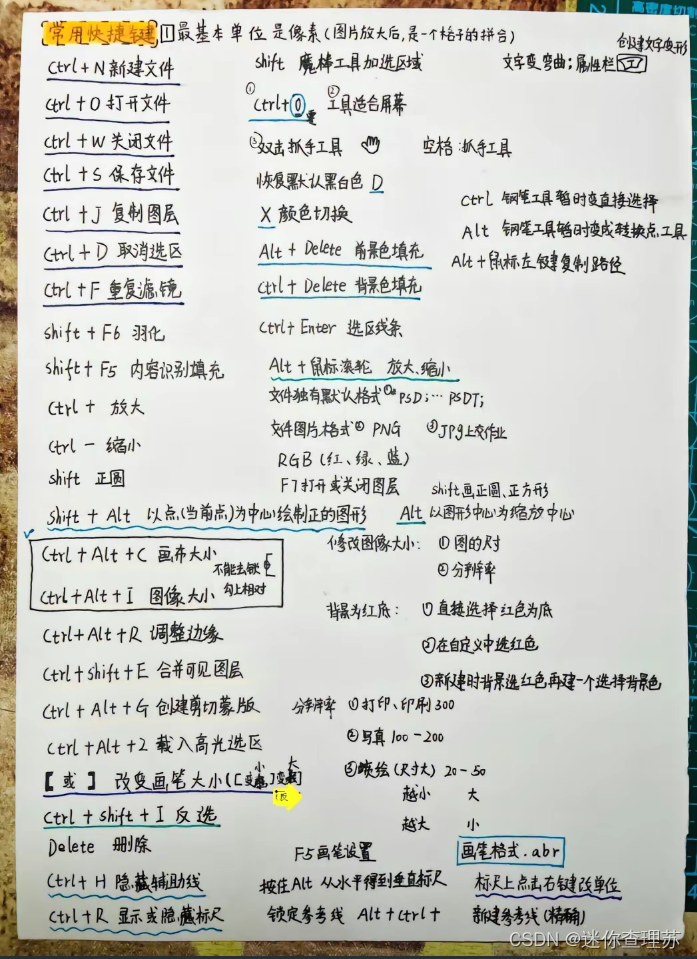 高密度切割
常用快捷键 ①最基本单位是像素(图片放大后,是一个格子的拼合)
创建文字变形
Ctrl+N 新建文件 shift 魔棒工具加选区域 文字变弯曲:属性栏
Ctrl+O 打开文件 ①Ctrl+0 ②工具适合屏幕
Ctrl+W 关闭文件 ③双击抓手工具 空格:抓手工具
Ctrl+S 保存文件 恢复默认黑白色 D
Ctrl 钢笔工具暂时变直接选择
Ctrl+J 复制图层 X 颜色切换
Alt 钢笔工具暂时变成转换点工具
Ctrl+D 取消选区 Alt+Delete 前景色填充
Alt+鼠标左键复制路径
Ctrl+F 重复滤镜 Ctrl+Delete 背景色填充
shift+F6 羽化 Ctrl+Enter 选区线条
shift+F5 内容识别填充 Alt+鼠标滚轮 放大、缩小
Ctrl+ 放大 文件独有默认格式① PSD;… PSDT;
Ctrl - 缩小 文件图片格式② PNG ③JPg上交作业
RGB(红、绿、蓝)
shift 正圆 F7打开或关闭图层 shift画正圆、正方形
shift+Alt 以点(当前点)为中心绘制正的图形 Alt 以图形中心为缩放中心
Ctrl+Alt+C 画布大小 修改图像大小: ①图的尺寸
不能去锁
②分辨率
Ctrl+Alt+I 图像大小 勾上相对
背景为红底: ①直接选择红色为底
Ctrl+Alt+R 调整边缘 ②在自定义中选红色
Ctrl+shift+E 合并可见图层 ③新建时背景选红色再建一个选择背景色
Ctrl+Alt+G 创建剪切蒙版 分辨率 ①打印、印刷300
Ctrl+Alt+2 载入高光选区 ②写真 100-200
小 大
[ 或 ] 改变画笔大小([变 ]变 ③喷绘(尺寸大) 20-50
越小 大
Ctrl+shift+I 反选 越大 小
Delete 删除 F5画笔设置 画笔格式.abr
Ctrl+H 隐藏辅助线 按住Alt 从水平得到垂直标尺 标尺上点击右键改单位
Ctrl+R 显示或隐藏标尺 锁定参考线 Alt+Ctrl+ 新建参考线(精确)
CSDN @迷你查理苏